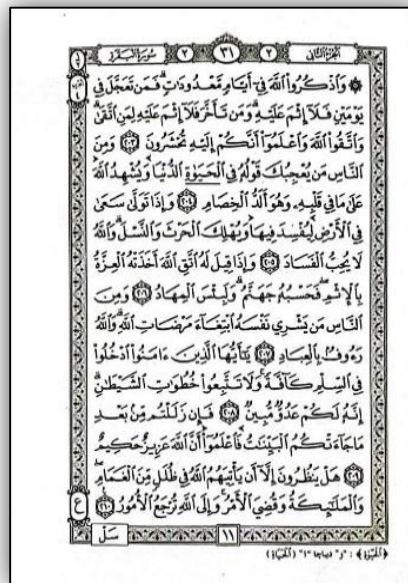 الجزء الثاني ٢ ٣١ ٢ سورة البقرة
۞ وَاذْكُرُوا۟ اللَّهَ فِىٓ أَيَّامٍ مَّعْدُودَٰتٍ فَمَن تَعَجَّلَ فِى
يَوْمَيْنِ فَلَآ إِثْمَ عَلَيْهِ وَمَن تَأَخَّرَ فَلَآ إِثْمَ عَلَيْهِ لِمَنِ اتَّقَىٰ
وَاتَّقُوا۟ اللَّهَ وَاعْلَمُوٓا۟ أَنَّكُمْ إِلَيْهِ تُحْشَرُونَ ٢٠٣ وَمِنَ
النَّاسِ مَن يُعْجِبُكَ قَوْلُهُ فِى الْحَيَوٰةِ الدُّنْيَا وَيُشْهِدُ اللَّهَ
عَلَىٰ مَا فِى قَلْبِهِ وَهُوَ أَلَدُّ الْخِصَامِ ٢٠٤ وَإِذَا تَوَلَّىٰ سَعَىٰ
فِى الْأَرْضِ لِيُفْسِدَ فِيهَا وَيُهْلِكَ الْحَرْثَ وَالنَّسْلَ وَاللَّهُ
لَا يُحِبُّ الْفَسَادَ ٢٠٥ وَإِذَا قِيلَ لَهُ اتَّقِ اللَّهَ أَخَذَتْهُ الْعِزَّةُ
بِالْإِثْمِ فَحَسْبُهُ جَهَنَّمُ وَلَبِئْسَ الْمِهَادُ ٢٠٦ وَمِنَ
النَّاسِ مَن يَشْرِى نَفْسَهُ ابْتِغَآءَ مَرْضَاتِ اللَّهِ وَاللَّهُ
رَءُوفٌۢ بِالْعِبَادِ ٢٠٧ يَٰٓأَيُّهَا الَّذِينَ ءَامَنُوا۟ ادْخُلُوا۟
فِى السِّلْمِ كَآفَّةً وَلَا تَتَّبِعُوا۟ خُطُوَٰتِ الشَّيْطَٰنِ
إِنَّهُ لَكُمْ عَدُوٌّ مُّبِينٌ ٢٠٨ فَإِن زَلَلْتُم مِّنۢ بَعْدِ
مَا جَآءَتْكُمُ الْبَيِّنَٰتُ فَاعْلَمُوٓا۟ أَنَّ اللَّهَ عَزِيزٌ حَكِيمٌ
٢٠٩ هَلْ يَنظُرُونَ إِلَّآ أَن يَأْتِيَهُمُ اللَّهُ فِى ظُلَلٍ مِّنَ الْغَمَامِ
وَالْمَلَٰٓئِكَةُ وَقُضِىَ الْأَمْرُ وَإِلَى اللَّهِ تُرْجَعُ الْأُمُورُ ٢١٠
ع
١١ سَلْ
﴿الحَيَوٰة﴾ : "و" ديباچا "ا" (الحَيَاة)